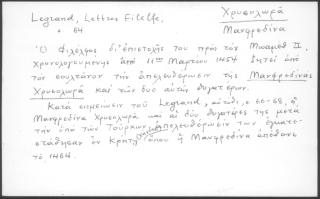 Legrand, Lettres Filelfe,
σ 64
Χρυσοχωρᾶ
Μανφρεδίνα
Ὁ Φιλέλφος δι' ἐπιστολῆς του πρὸς τὸν Μωάμεθ II,
χρονολογουμένης ἀπὸ 11ης Μαρτίου 1454 ζητεῖ ἀπὸ
τὸν σουλτάνον τὴν ἀπελευθέρωσιν τῆς Μανφρεδίνας
Χρυσοχωρᾶ καὶ τῶν δύο αὐτῆς θυγατέρων.
Κατὰ σημείωσιν τοῦ Legrand, αὐτόθι, σ 66-68, ἡ
Μανφρεδίνα Χρυσοχωρᾶ καὶ αἱ δύο θυγατέρες της μετὰ
τὴν ὑπὸ τῶν Τούρκων ἀπελευθέρωσίν των ἐγκατε-
στάθησαν ἐν Κρήτῃ ὅπου ἡ Μανφρεδίνα ἀπέθανε
τὸ 1464.